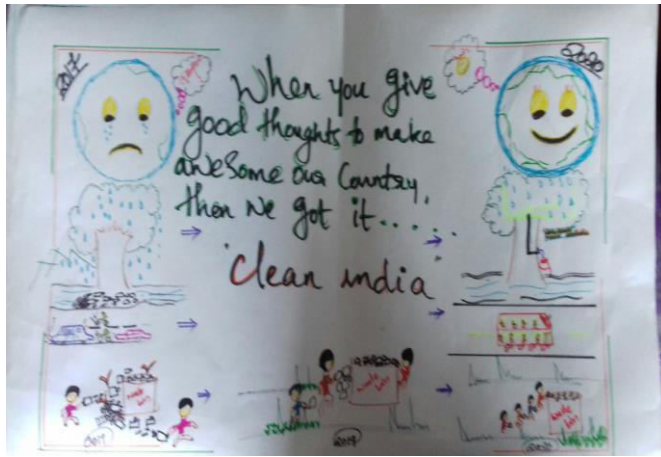 2017
2020
When you give
good thoughts to make
awesome our Country,
then we got it.....
Clean india
2017
2019